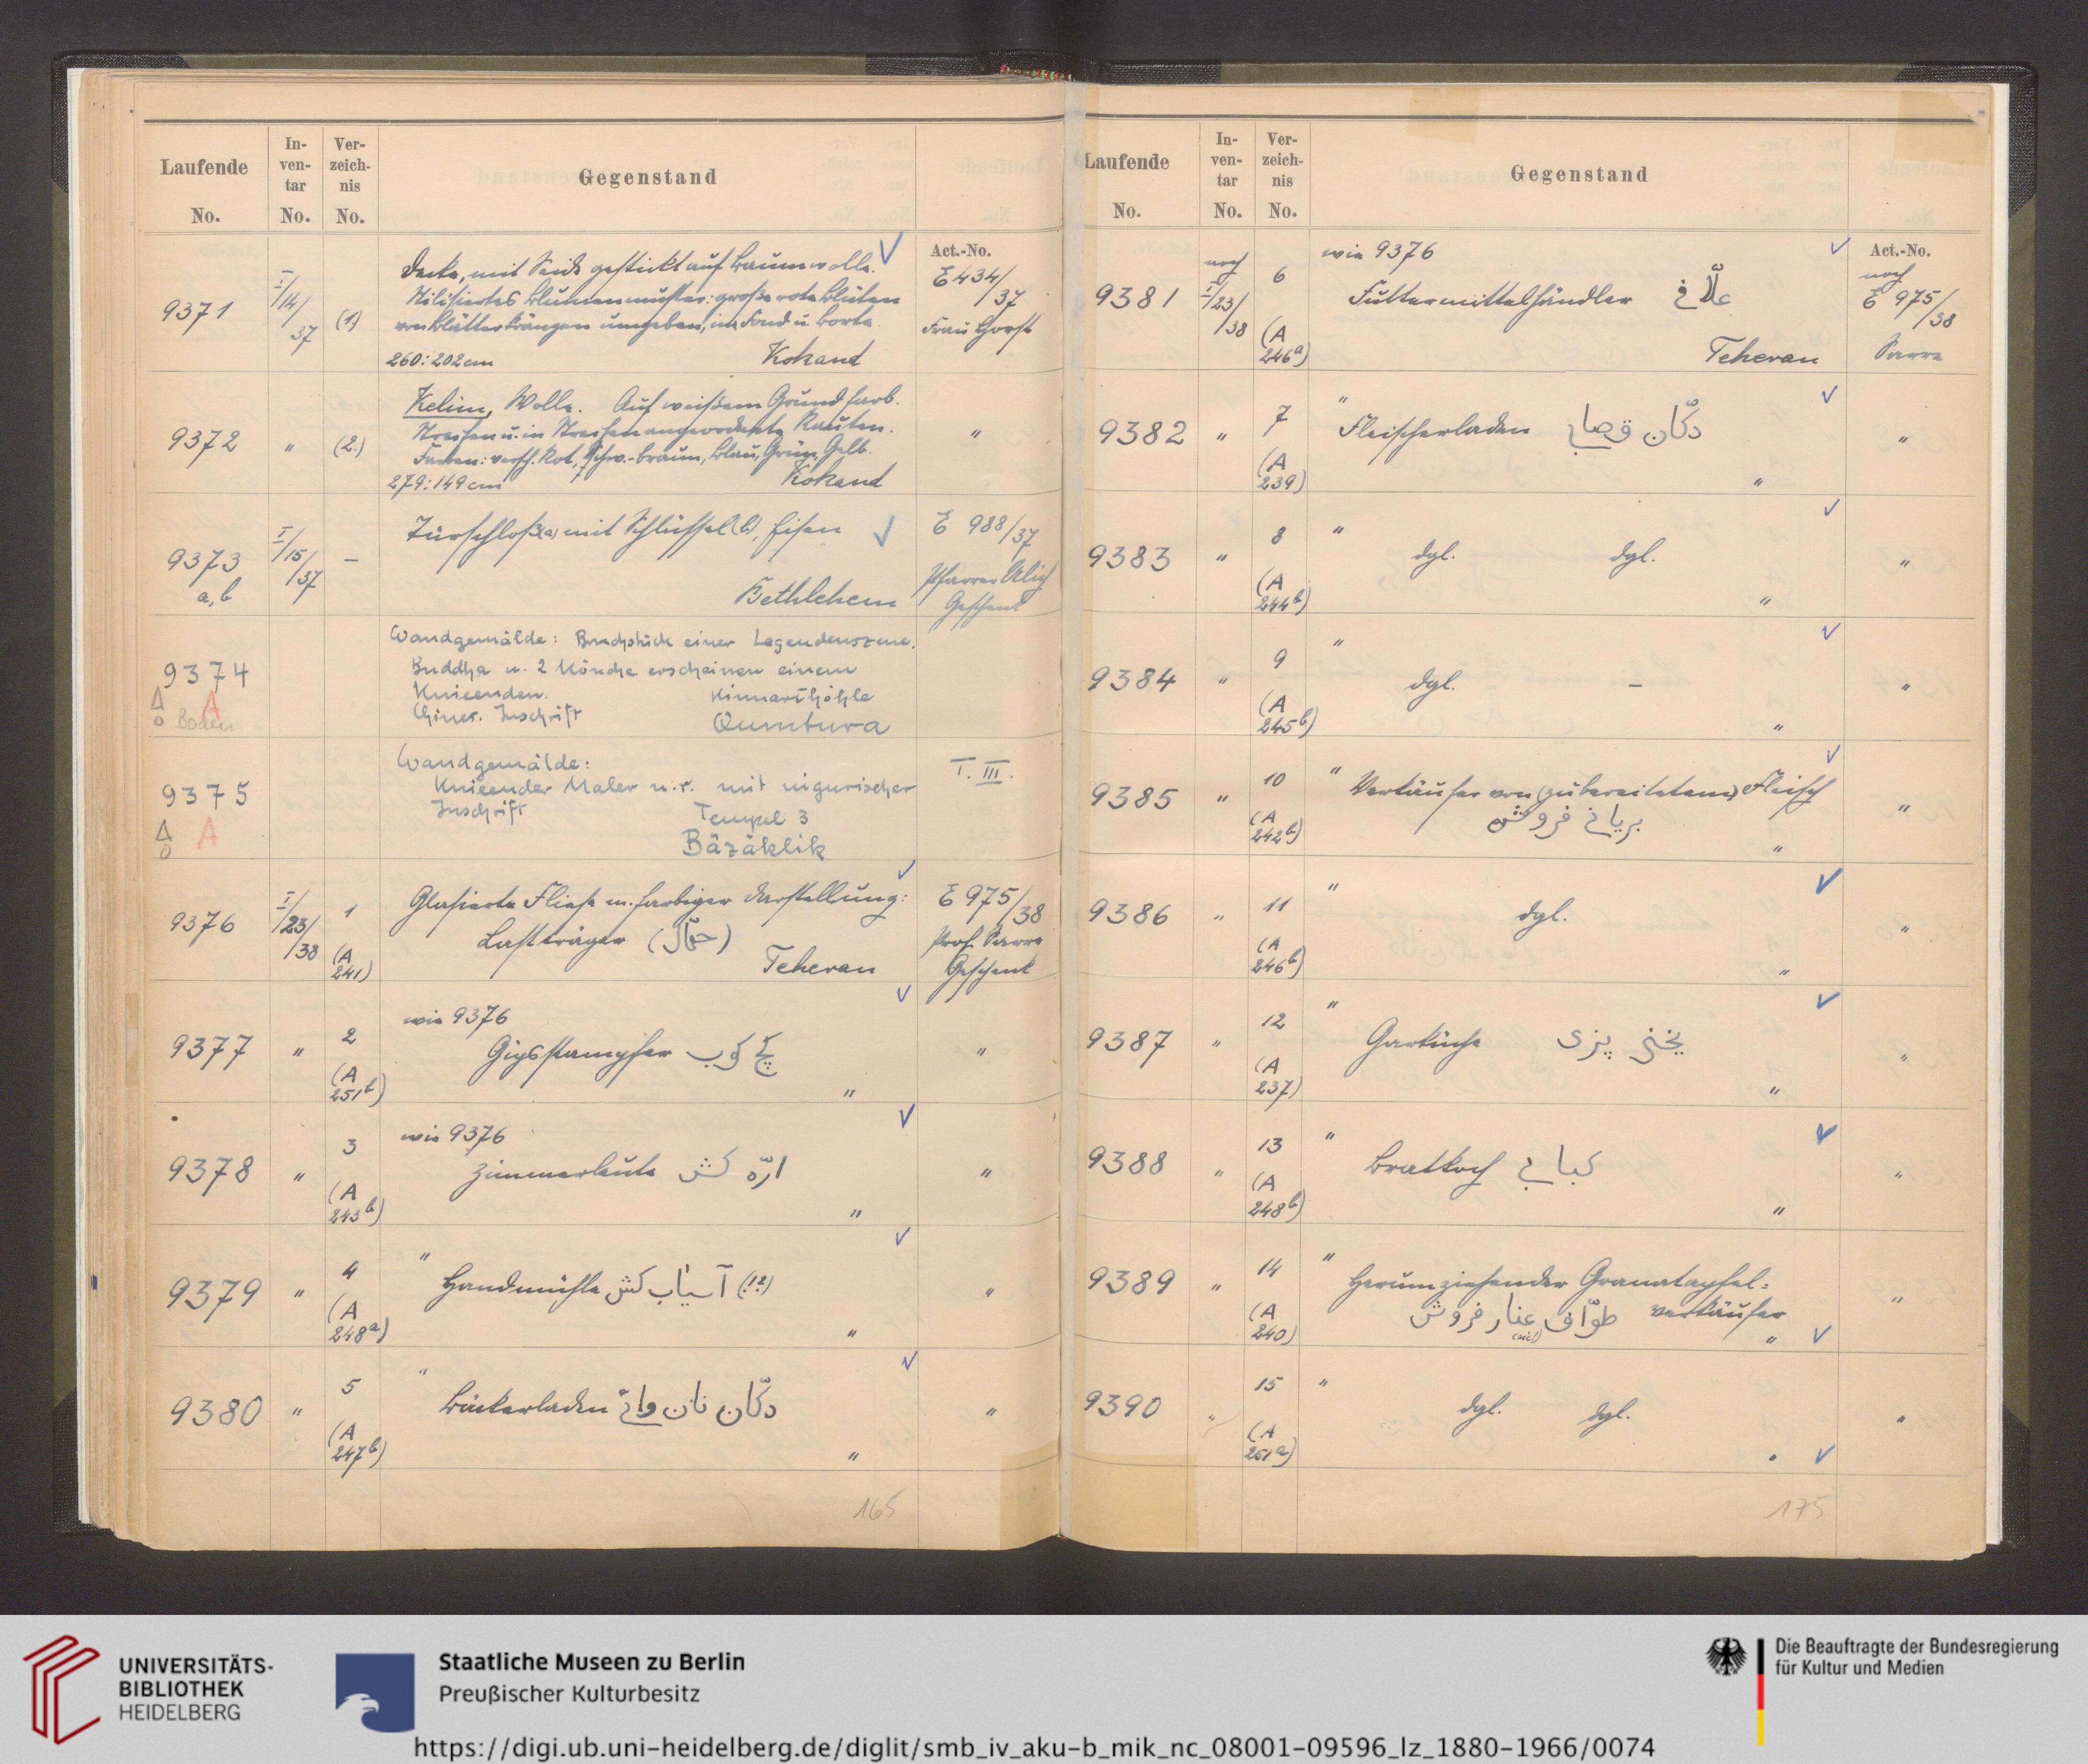 Laufende
No.
In-
ven-
tar
No.
Ver-
zeich-
nis
No.
Gegenstand
Act.-No.
9371
I/14/37
(1)
Decke, mit Seide gestickt auf Baumwolle.
Stilisiertes Blumenmuster: große rote Blüten
von Blätterkränzen umgeben, im Fond u. Borte
260:202cm Kokand
E 434/37
Frau Horst
9372
"
(2.)
Kelim, Wolle. Auf weißem Grund farb.
Streifen u. in Streifen angeordnete Rauten.
Farben: versch. Rot, Schw.-braun, Blau, Grün, Gelb.
279:149cm Kokand
"
9373
a, b
I/15/37
–
Türschloß(a) mit Schlüssel(b), Eisen
Bethlehem
E 988/37
Pfarrer
Geschenk
9374
A
Boden
Wandgemälde: Bruchstück einer Legendenszene.
Buddha u. 2 Mönche erscheinen einem
Knieenden. Kinnarīhöhle
Chines. Inschrift Qumtura
9375
A
Wandgemälde:
Knieender Maler n.r. mit uigurischer
Inschrift Tempel 3
Bäzäklik
T. III.
9376
I/23/38
1
(A
241)
Glasierte Fliese m. farbiger Darstellung:
Lastträger (حمّال)
Teheran
E 975/38
Prof. Sarre
Geschenk
9377
"
2
(A
251b)
wie 9376
Gipsstampfer گچ کوب
"
"
9378
"
3
(A
243b)
wie 9376
Zimmerleute ارّه کش
"
"
9379
"
4
(A
248a)
"
Handmühle آسیاب کش (!?)
"
"
9380
"
5
(A
247b)
"
Bäckerladen دکّان نان وائی
"
"
165
Laufende
No.
In-
ven-
tar
No.
Ver-
zeich-
nis
No.
Gegenstand
Act.-No.
9381
noch
I/23/38
6
(A
246a)
wie 9376
Futtermittelhändler علّافی
Teheran
noch
E 975/38
Sarre
9382
"
7
(A
239)
"
Fleischerladen دکّان قصابی
"
"
9383
"
8
(A
244b)
"
dgl. dgl.
"
"
9384
"
9
(A
245b)
"
dgl. –
"
"
9385
"
10
(A
242b)
" Verkäufer von (zubereitetem) Fleisch
بریانی فروش
"
"
9386
"
11
(A
246b)
"
dgl.
"
"
9387
"
12
(A
237)
"
Garküche یخنی پزی
"
"
9388
"
13
(A
248b)
"
Bratkoch کبابی
"
"
9389
"
14
(A
240)
"
Herumziehender Granatapfel-
verkäufer طوّاف عنار فروش
(sic!)
"
"
9390
"
15
(A
251a)
"
dgl. dgl.
"
"
175
UNIVERSITÄTS-
BIBLIOTHEK
HEIDELBERG
Staatliche Museen zu Berlin
Preußischer Kulturbesitz
Die Beauftragte der Bundesregierung
für Kultur und Medien
https://digi.ub.uni-heidelberg.de/diglit/smb_iv_aku-b_mik_nc_08001-09596_lz_1880-1966/0074